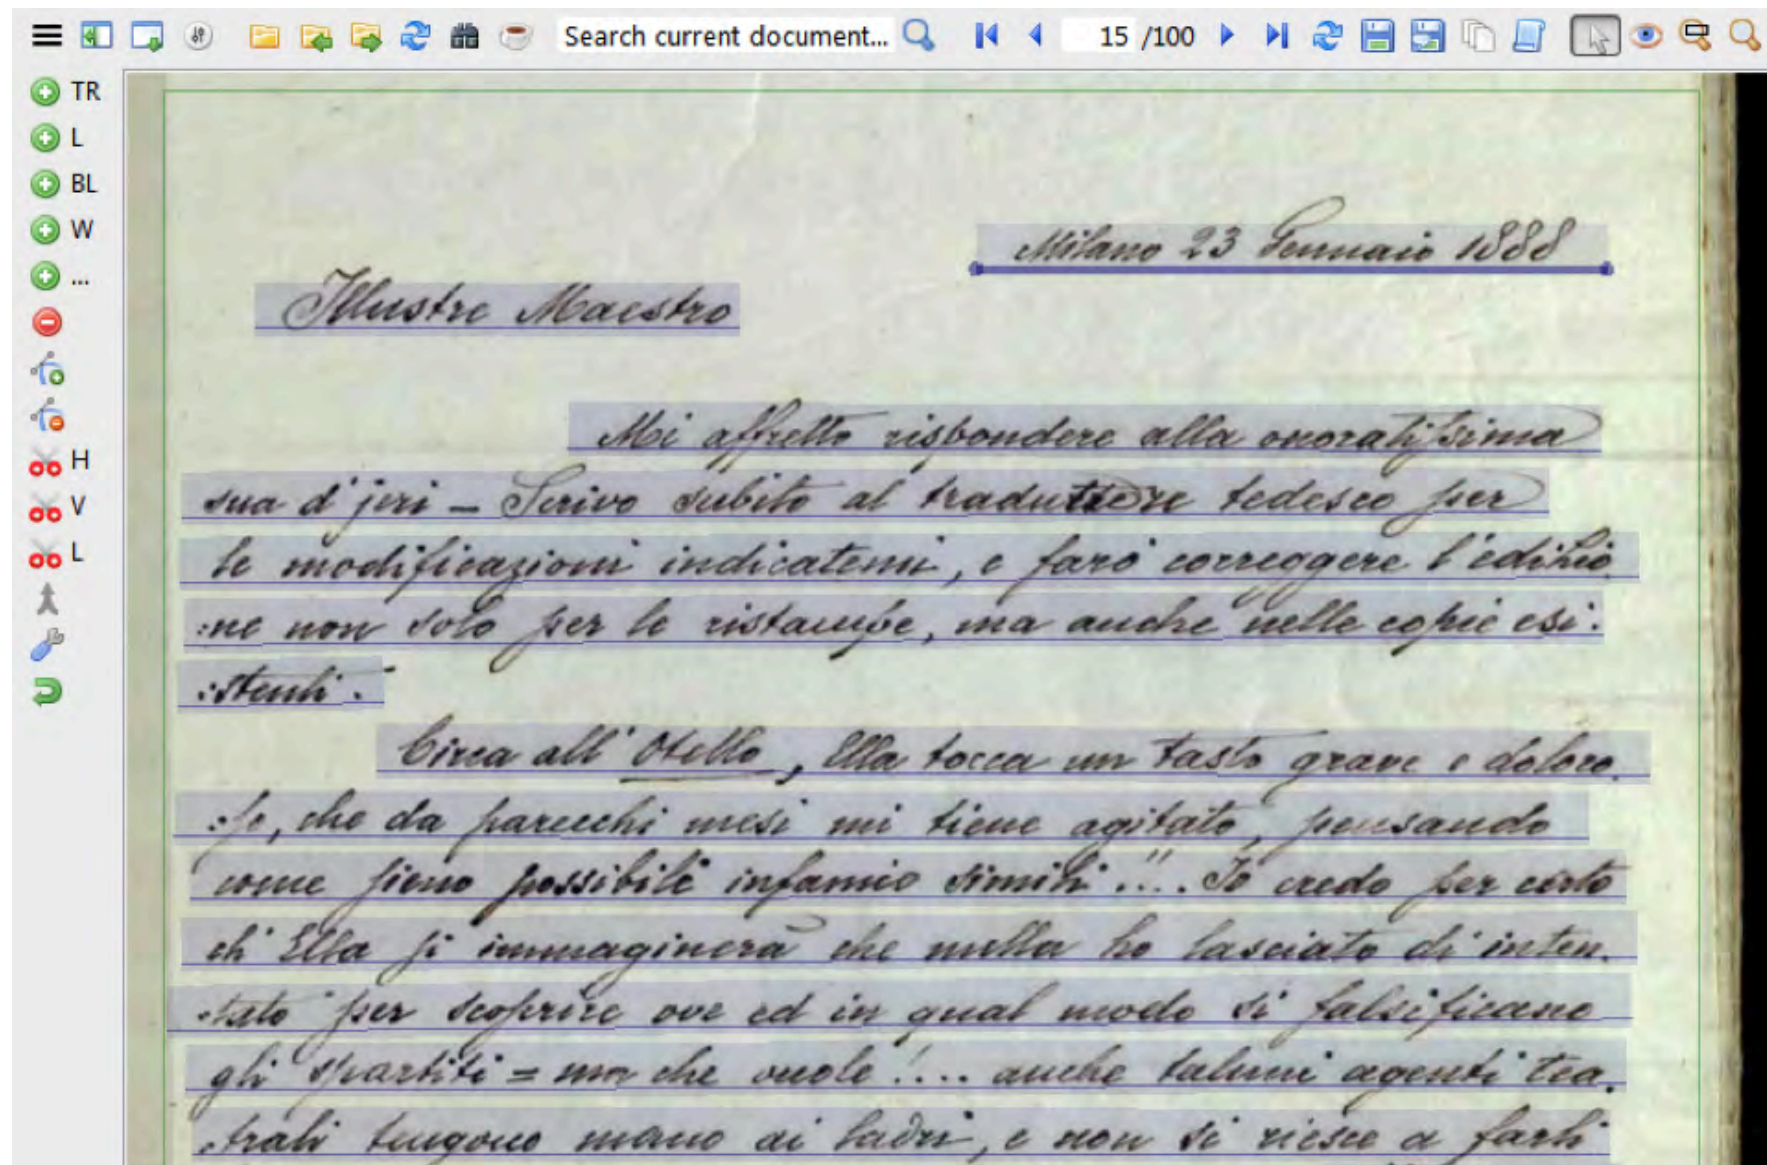 Search current document...
15 /100
TR
L
BL
W
...
H
V
L
Milano 23 Gennaio 1888
Illustre Maestro
Mi affretto rispondere alla onoratissima
sua d'jeri – Scrivo subito al traduttore tedesco per
le modificazioni indicatemi, e farò correggere l'edizio
:ne non solo per le ristampe, ma anche nelle copie esi:
:stenti.
Circa all'Otello, Ella tocca un tasto grave e doloro
:so, che da parecchi mesi mi tiene agitato, pensando
come sieno possibile infamie simili!!... Io credo per certo
ch'Ella si immaginerà che nulla ho lasciato di inten.
:tato per scoprire ove ed in qual modo si falsificano
gli spartiti = ma che vuole!.... anche taluni agenti tea.
:trali tengono mano ai ladri, e non si riesce a farli